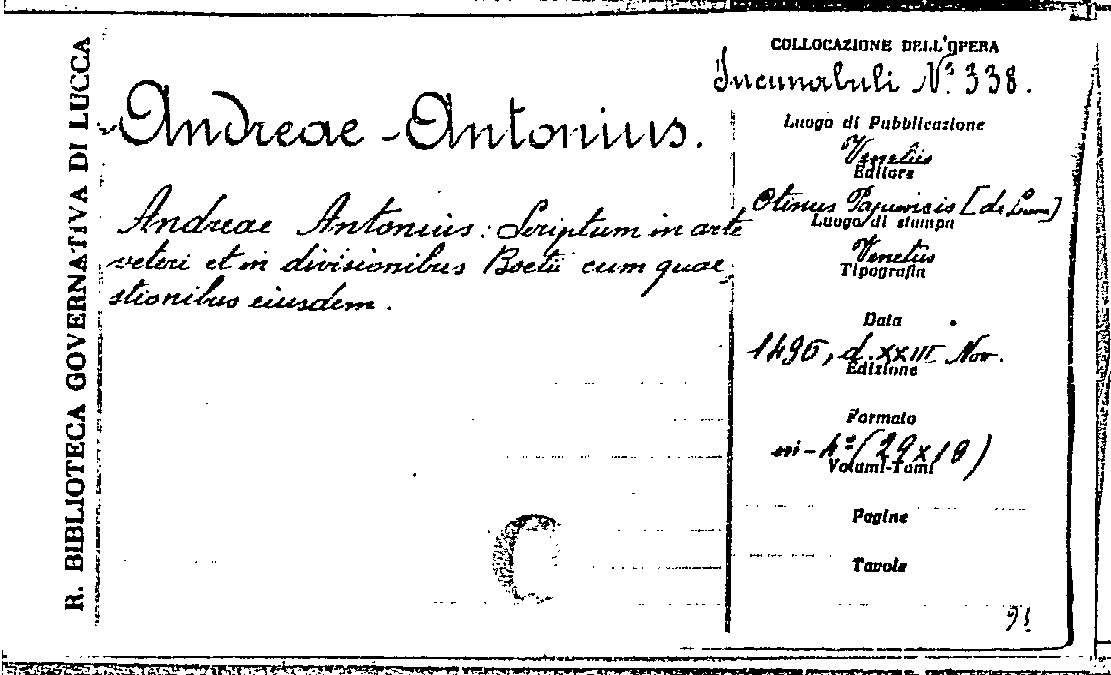 R. BIBLIOTECA GOVERNATIVA DI LUCCA
Andreae - Antonius.
Andreae Antonius: Scriptum in arte
veteri et in divisionibus Boetii cum quae
stionibus eiusdem.
C
COLLOCAZIONE DELL'OPERA
Incunabuli N.º 338.
Luogo di Pubblicazione
Venetiis
Editore
Otinus Papiensis [de Luna]
Luogo di stampa
Venetiis
Tipografia
Data
d. XXIII Nov.
Edizione
Formato
in-4º
Volumi-Tomi
Pagine
Tavole
91